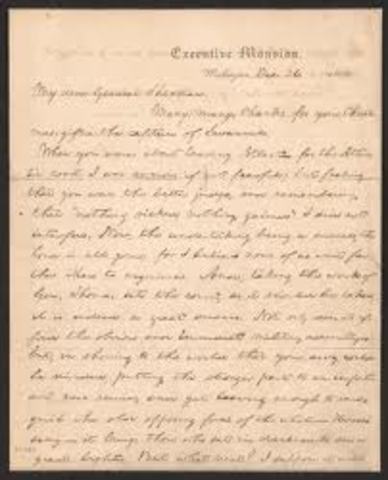 Executive Mansion.
Washington, Dec. 26, 1864
My dear General Sherman.
Many, many, thanks for your Christ-
mas-gift—the capture of Savannah.
When you were about leaving Atlanta for the Atlan-
tic coast, I was anxious, if not fearful; but feeling
that you were the better judge, and remembering
that "nothing risked, nothing gained" I did not
interfere. Now, the undertaking being a success, the
honor is all yours; for I believe none of us went far-
ther than to acquiesce. And, taking the work of
Gen. Thomas into the count, as it should be taken,
it is indeed a great success. Not only does it af-
ford the obvious and immediate military advantages;
but, in showing to the world that your army could
be divided, putting the stronger part to an important
new service, and yet leaving enough to van-
quish the old opposing force of the whole—Hood's
army—it brings those who sat in darkness, to see a
great light. But what next? I suppose it will